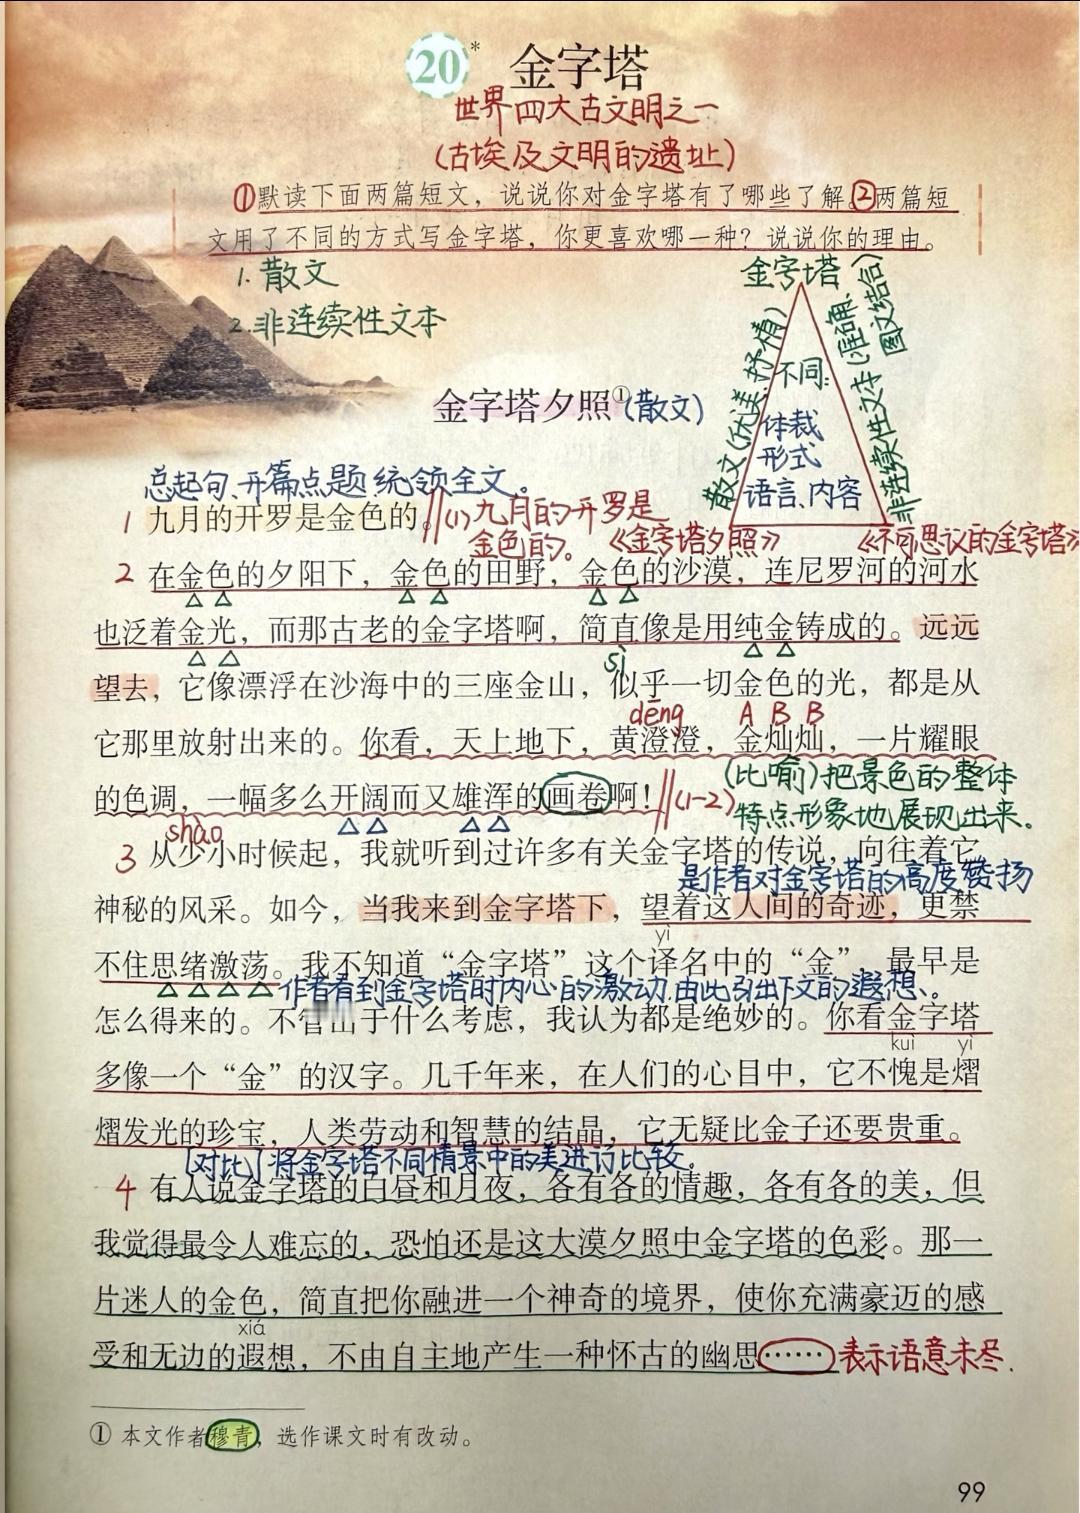 20* 金字塔
世界四大古文明之一
(古埃及文明的遗址)
①默读下面两篇短文，说说你对金字塔有了哪些了解。②两篇短
文用了不同的方式写金字塔，你更喜欢哪一种？说说你的理由。
1. 散文
2. 非连续性文本
金字塔
散文(优美、抒情)
非连续性文本(准确、图文结合)
不同:
体裁
形式
语言、内容
《金字塔夕照》
《不可思议的金字塔》
金字塔夕照①(散文)
总起句、开篇点题,统领全文。
1 九月的开罗是金色的。
(1)九月的开罗是
金色的。
2 在金色的夕阳下，金色的田野，金色的沙漠，连尼罗河的河水
也泛着金光，而那古老的金字塔啊，简直像是用纯金铸成的。远远
sì
望去，它像漂浮在沙海中的三座金山，似乎一切金色的光，都是从
dēng A B B
它那里放射出来的。你看，天上地下，黄澄澄，金灿灿，一片耀眼
的色调，一幅多么开阔而又雄浑的画卷啊！
(1-2)
(比喻)把景色的整体
特点形象地展现出来。
shào
3 从少小时候起，我就听到过许多有关金字塔的传说，向往着它
是作者对金字塔的高度赞扬
神秘的风采。如今，当我来到金字塔下，望着这人间的奇迹，更禁
yì
不住思绪激荡。我不知道“金字塔”这个译名中的“金”，最早是
作者看到金字塔时内心的激动,由此引出下文的遐想、。
怎么得来的。不管出于什么考虑，我认为都是绝妙的。你看金字塔
kuì yì
多像一个“金”的汉字。几千年来，在人们的心目中，它不愧是熠
熠发光的珍宝，人类劳动和智慧的结晶，它无疑比金子还要贵重。
[对比]将金字塔不同情景中的美进行比较。
4 有人说金字塔的白昼和月夜，各有各的情趣，各有各的美，但
我觉得最令人难忘的，恐怕还是这大漠夕照中金字塔的色彩。那一
片迷人的金色，简直把你融进一个神奇的境界，使你充满豪迈的感
xiá
受和无边的遐想，不由自主地产生一种怀古的幽思……
表示语意未尽.
① 本文作者穆青，选作课文时有改动。
99